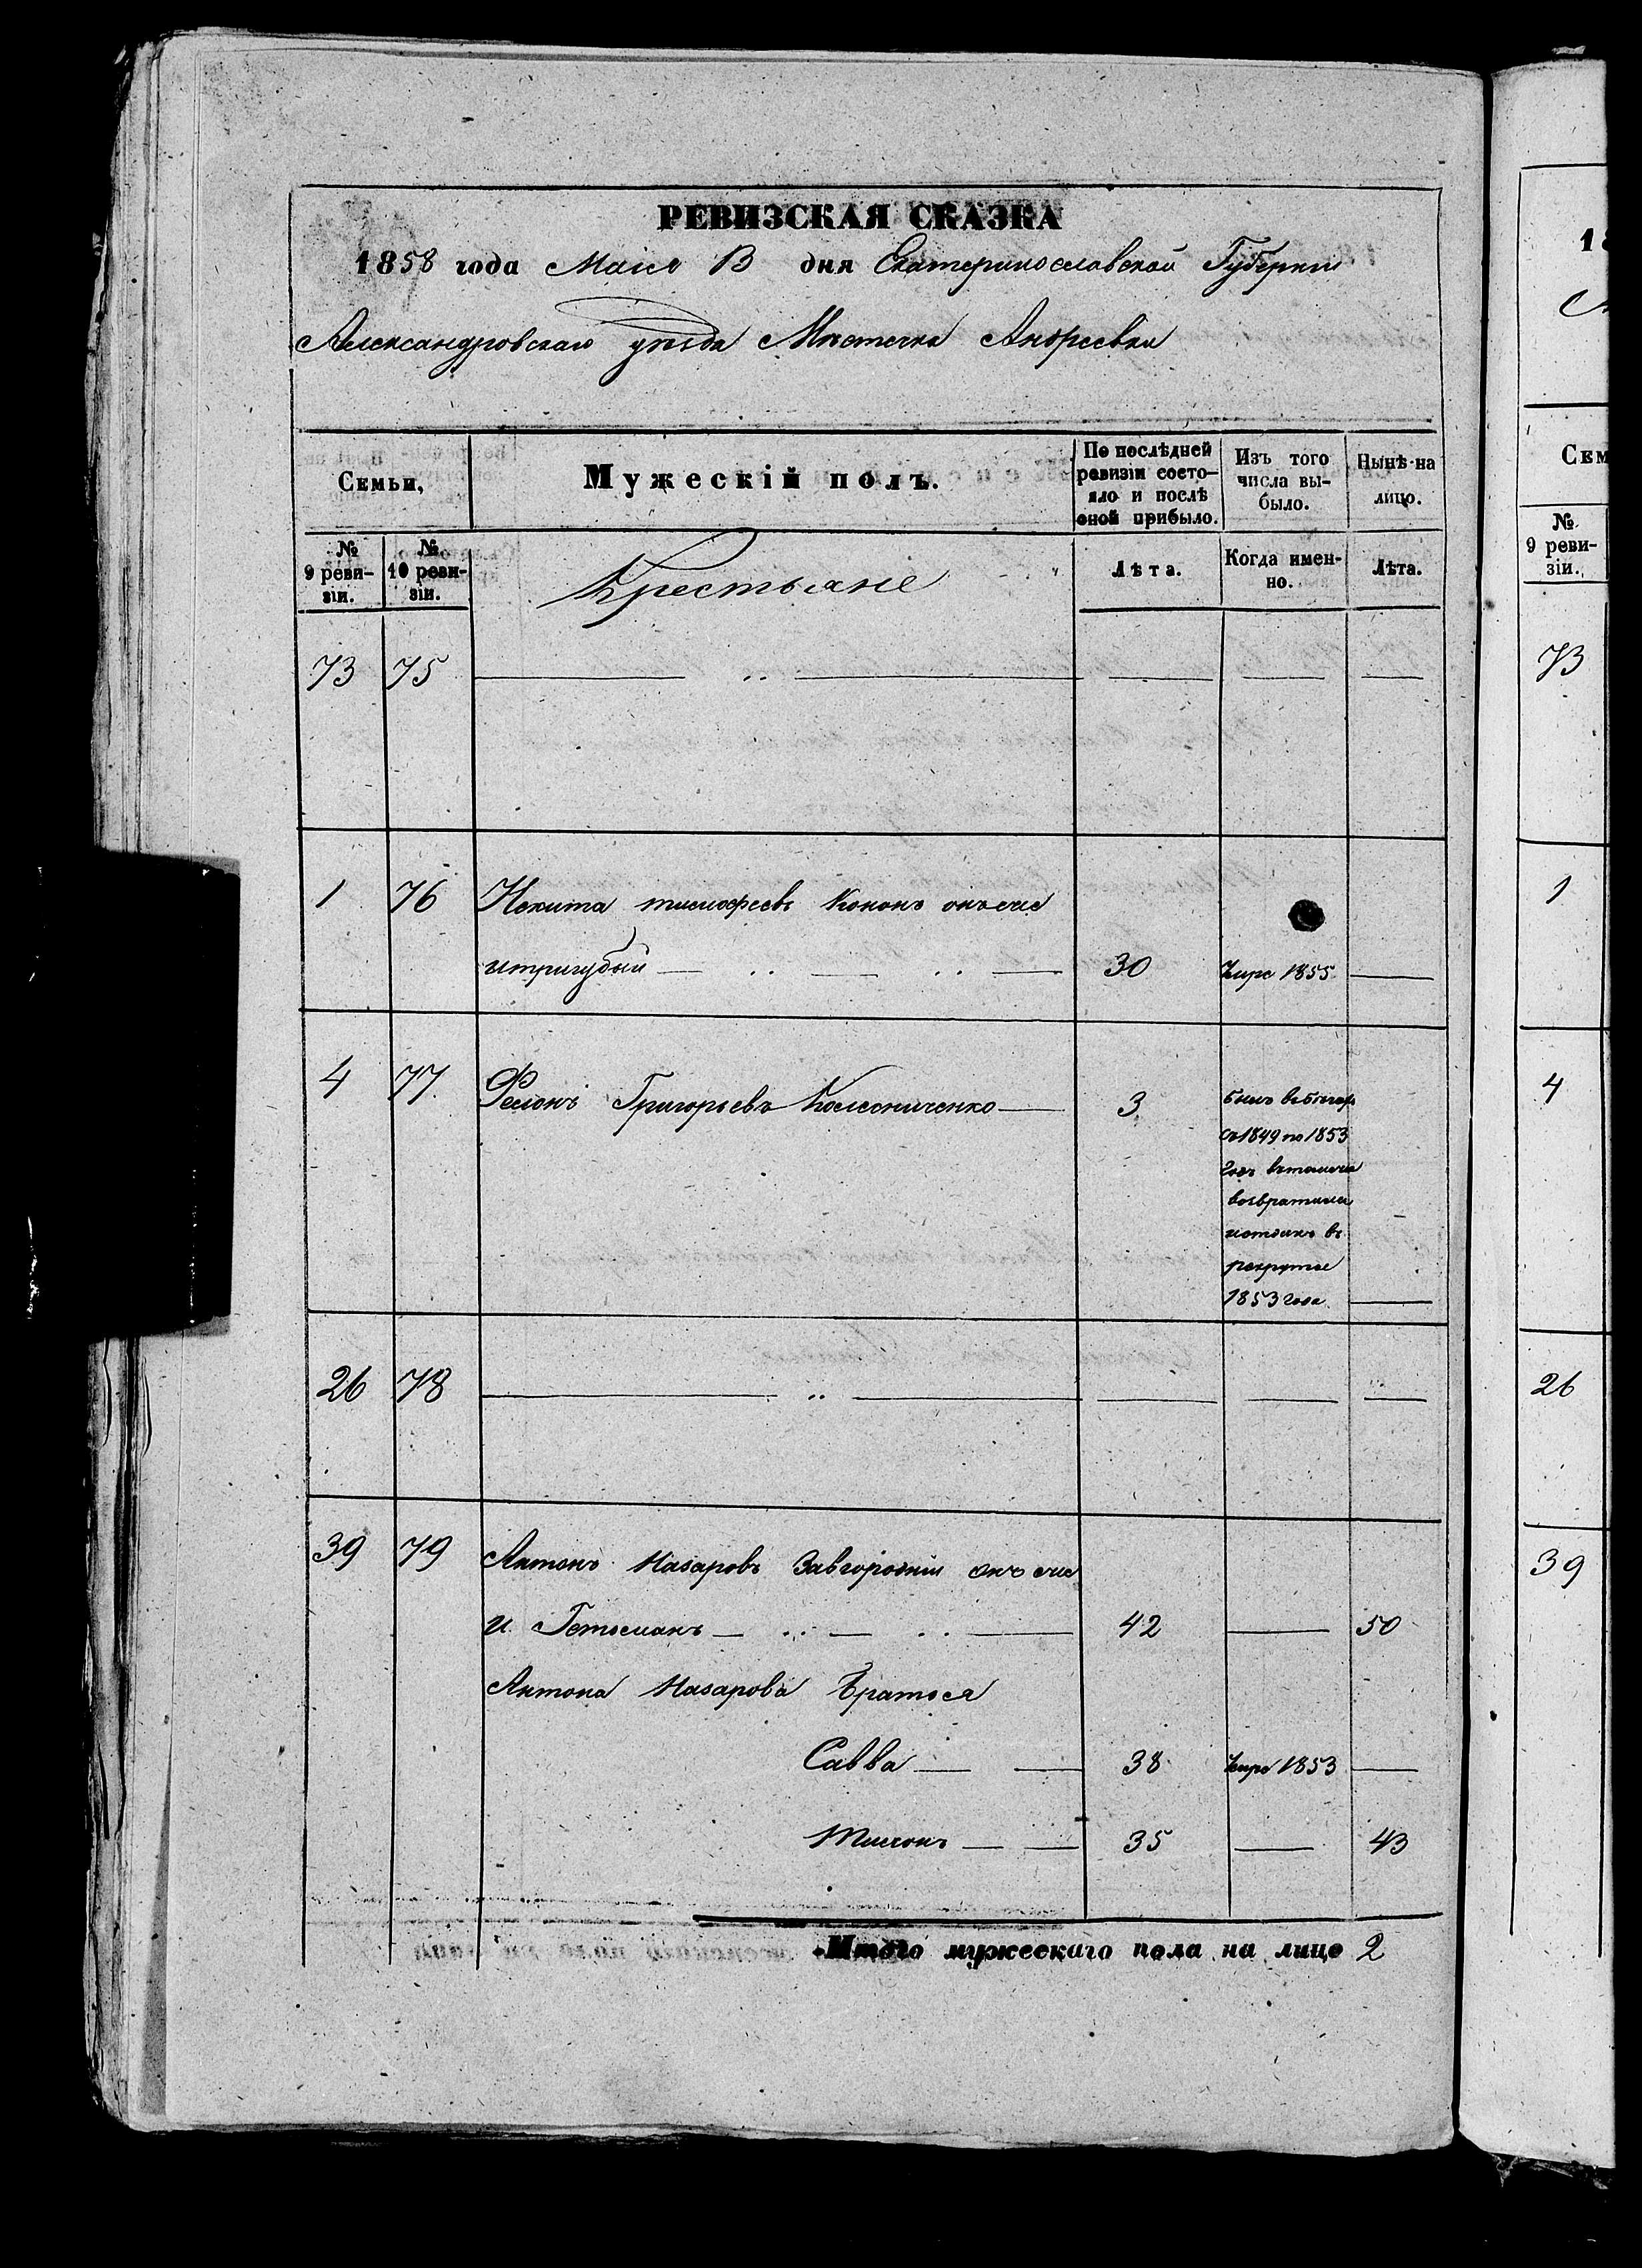 РЕВИЗСКАЯ СКАЗКА
1858 года Маія 13 дня Екатеринославской Губерніи
Александровскаго уѣзда Мѣстечка Андреевки
Семьи,
Мужескій полъ.
По послѣдней ревизіи состо-
яло и послѣ
оной прибыло.
Изъ того
числа вы-
было.
Нынѣ на
лицо.
№
9 реви-
зіи.
№
10 реви-
зіи.
Крестьяне
Лѣта.
Когда имен-
но.
Лѣта.
73 75 — „ — — — —
1 76 Никита тимофеевъ Кононъ онъ же
и тригубый — „ — „ — 30 Умре 1855 —
4 77 Григорьевъ Колесниченко — 3
былъ въ бегах
съ 1849 по 1853
годъ
возвратился
и отданъ въ
рекруты
1853 года —
26 78 — „ — — — —
39 79 Антонъ Назаровъ Завгородній онъ же
и Гетьманъ — „ — „ — 42 — 50
Антона Назарова Братья
Савва — — 38 Умре 1853 —
— — 35 — 43
Итого мужескаго пола на лицо 2
18
Сем
№
9 реви-
зіи.
73
1
4
26
39